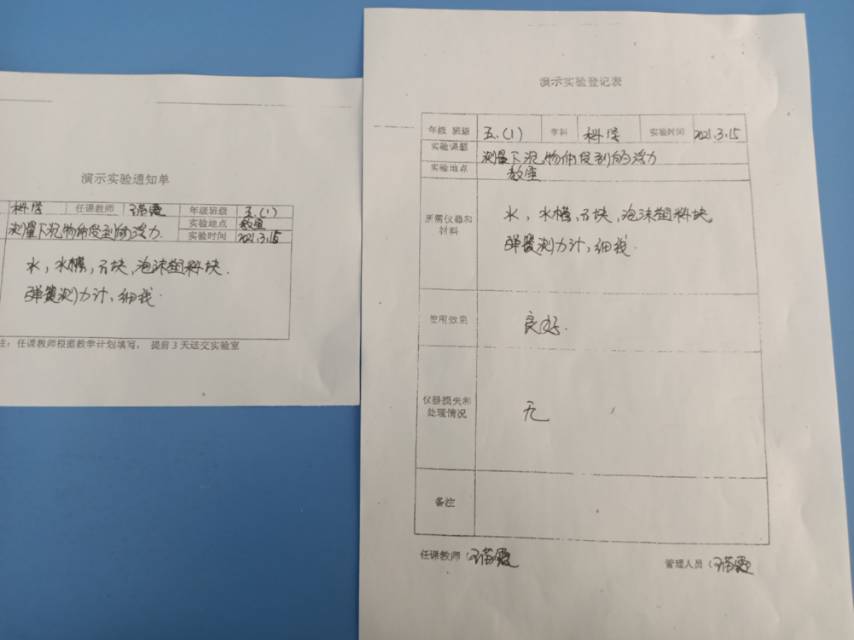 演示实验通知单
科学 任课教师 年级班级 五.(1)
测量下沉物体受到的浮力 实验地点 教室
实验时间 2021.3.15
水，水槽，石块，泡沫塑料块.
弹簧测力计，细线.
注：任课教师根据教学计划填写，提前3天送交实验室
演示实验登记表
年级 班级 五.(1) 学科 科学 实验时间 2021.3.15
实验课题 测量下沉物体受到的浮力
实验地点 教室
所需仪器和材料 水，水槽，石块，泡沫塑料块,
弹簧测力计，细线.
使用效果 良好.
仪器损失和处理情况 无
备注
任课教师（ 管理人员（